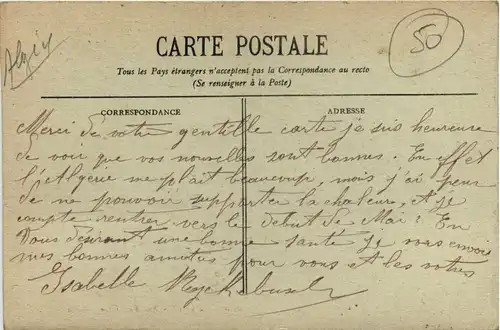 Alger
50
CARTE POSTALE
Tous les Pays étrangers n'acceptent pas la Correspondance au recto
(Se renseigner à la Poste)
CORRESPONDANCE
ADRESSE
Merci de votre gentille carte je suis heureuse
de voir que vos nouvelles sont bonnes. En effet
l'Algerie me plait beaucoup, mais j'ai peur
de ne pouvoir supporter la chaleur, et je
compte rentrer vers le debut de Mai? En
Vous désirant une bonne santé je vous envoie
mes bonnes amitiés pour vous et les votres
Isabelle